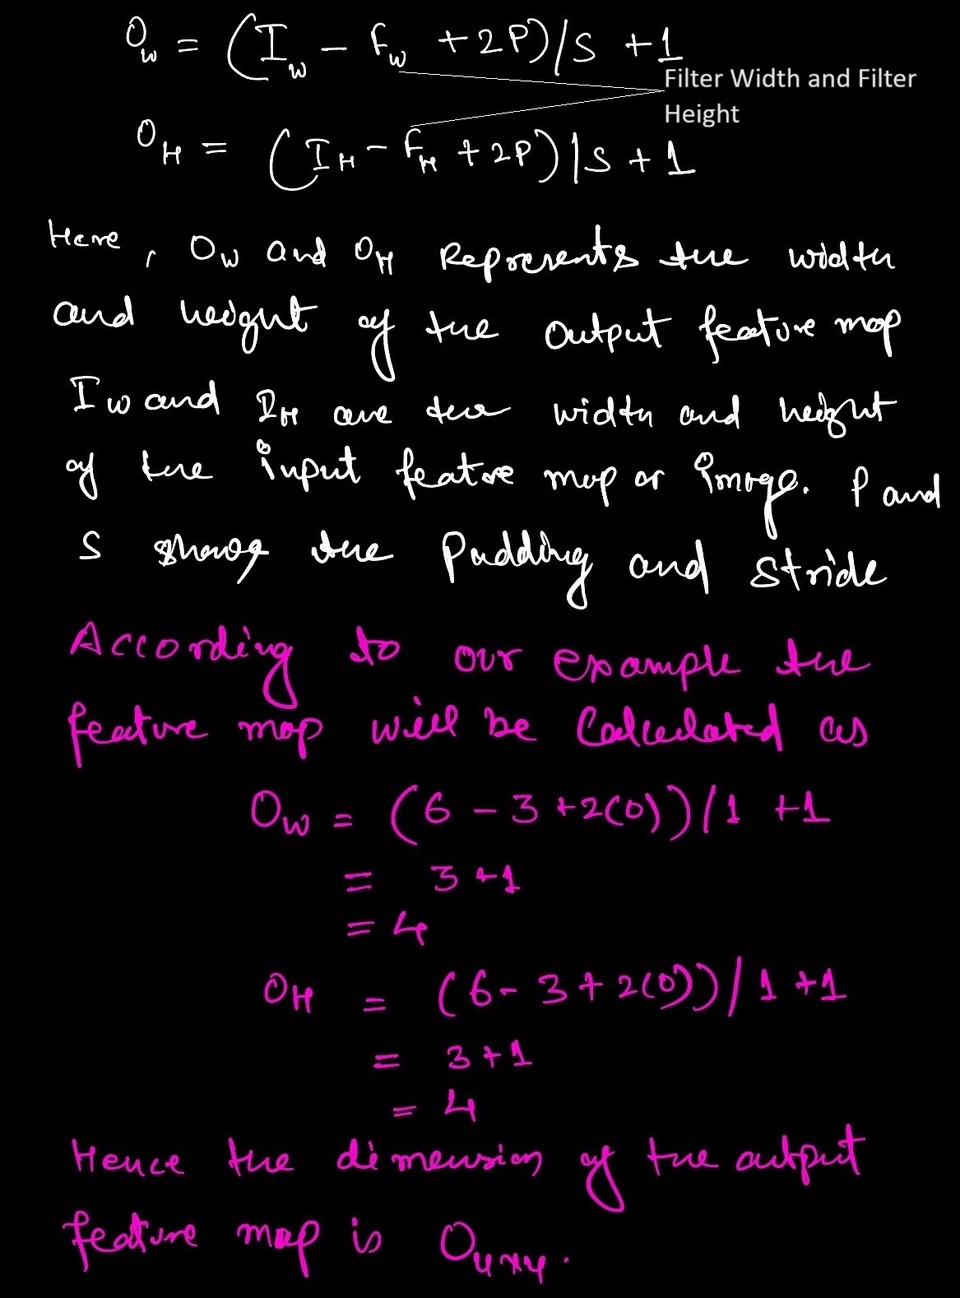 O_w = (I_w - F_w + 2P)/S + 1
Filter Width and Filter
Height
O_H = (I_H - F_H + 2P)/S + 1
Here, O_W and O_H Represents the width
and height of the output feature map
I_W and I_H are the width and height
of the input feature map or image. P and
S shows the Padding and stride
According to our example the
feature map will be Calculated as
O_W = (6 - 3 + 2(0))/1 + 1
= 3 + 1
= 4
O_H = (6 - 3 + 2(0))/1 + 1
= 3 + 1
= 4
Hence the dimension of the output
feature map is O_4x4.